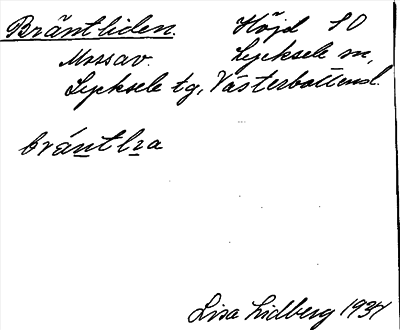 Bräntliden. Höjd SO
Mossav. Lycksele sn,
Lycksele tg, Västerbottensl.
bräntlıa
Lisa Lidberg 1931